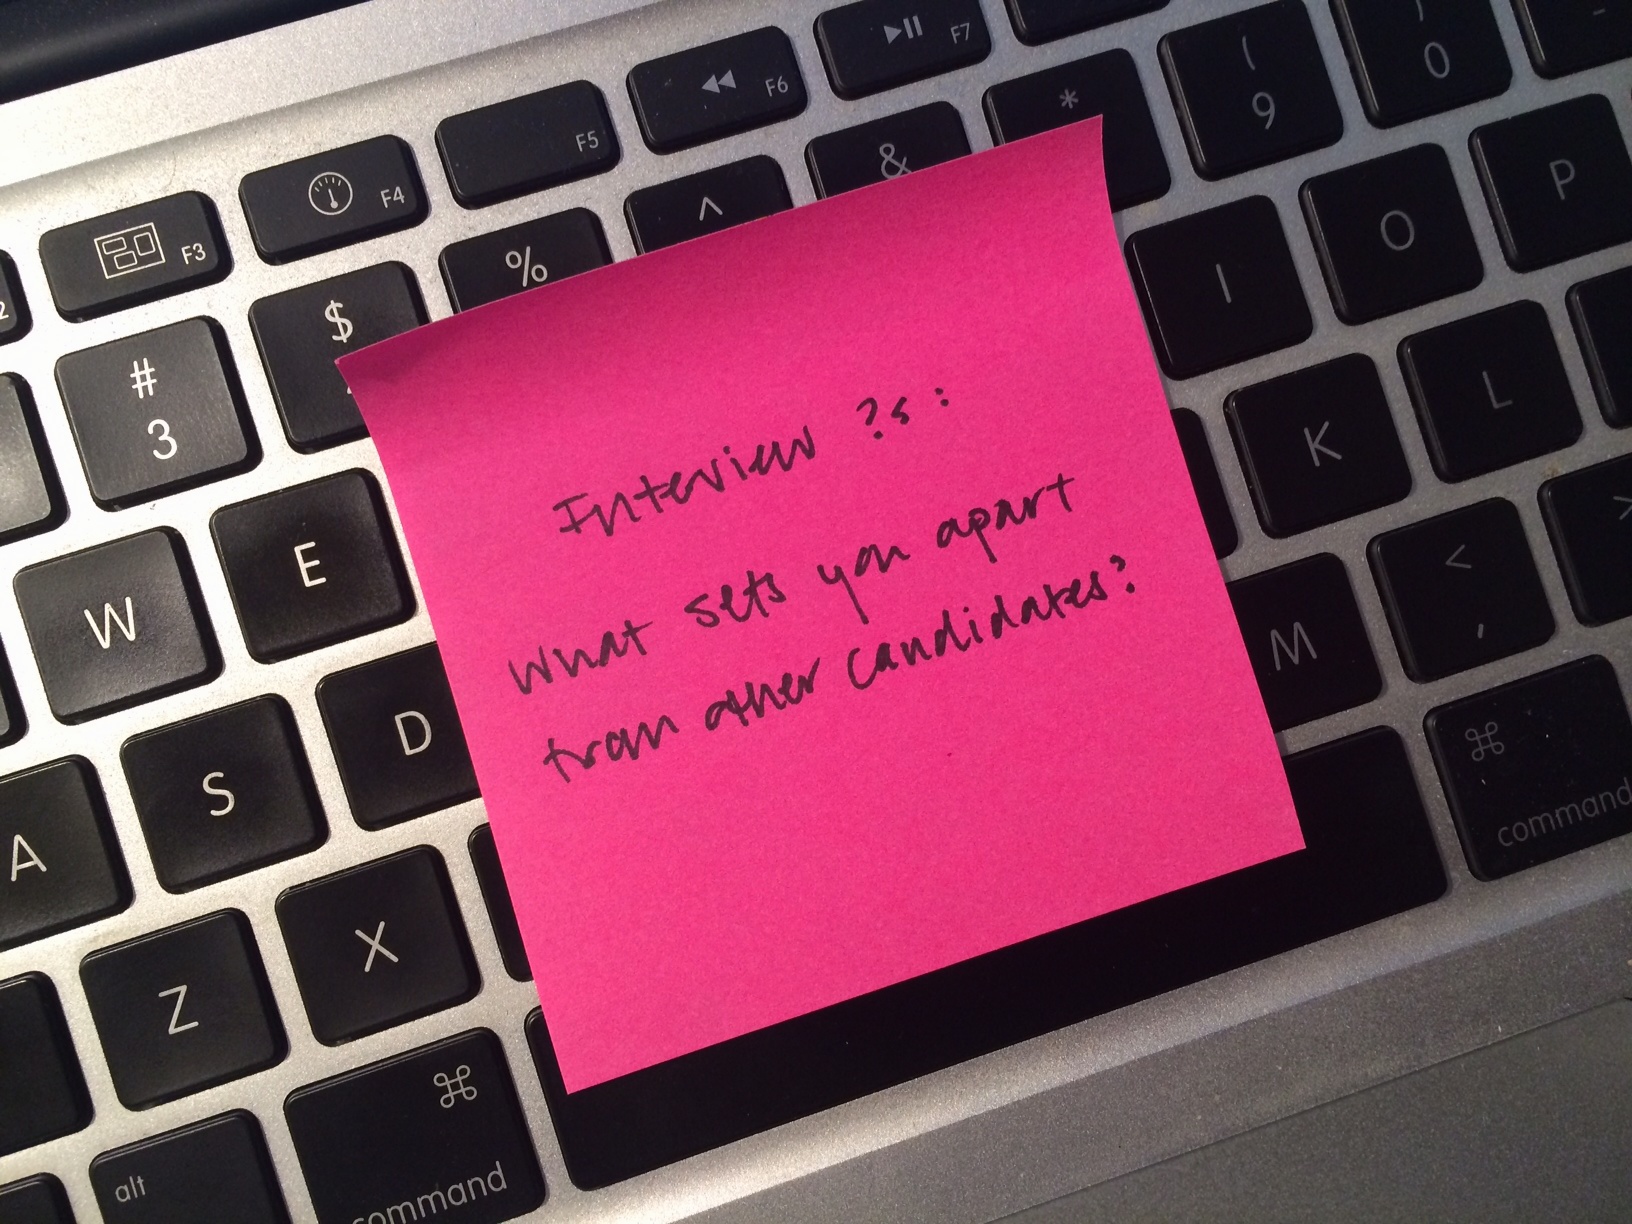 F3 F4 F5 F6 F7
# $ % ^ & * ( )
3 9 0
W E I O P
A S D K L
Z X M < >
,
alt command command
Interview ?s:
What sets you apart
from other candidates?